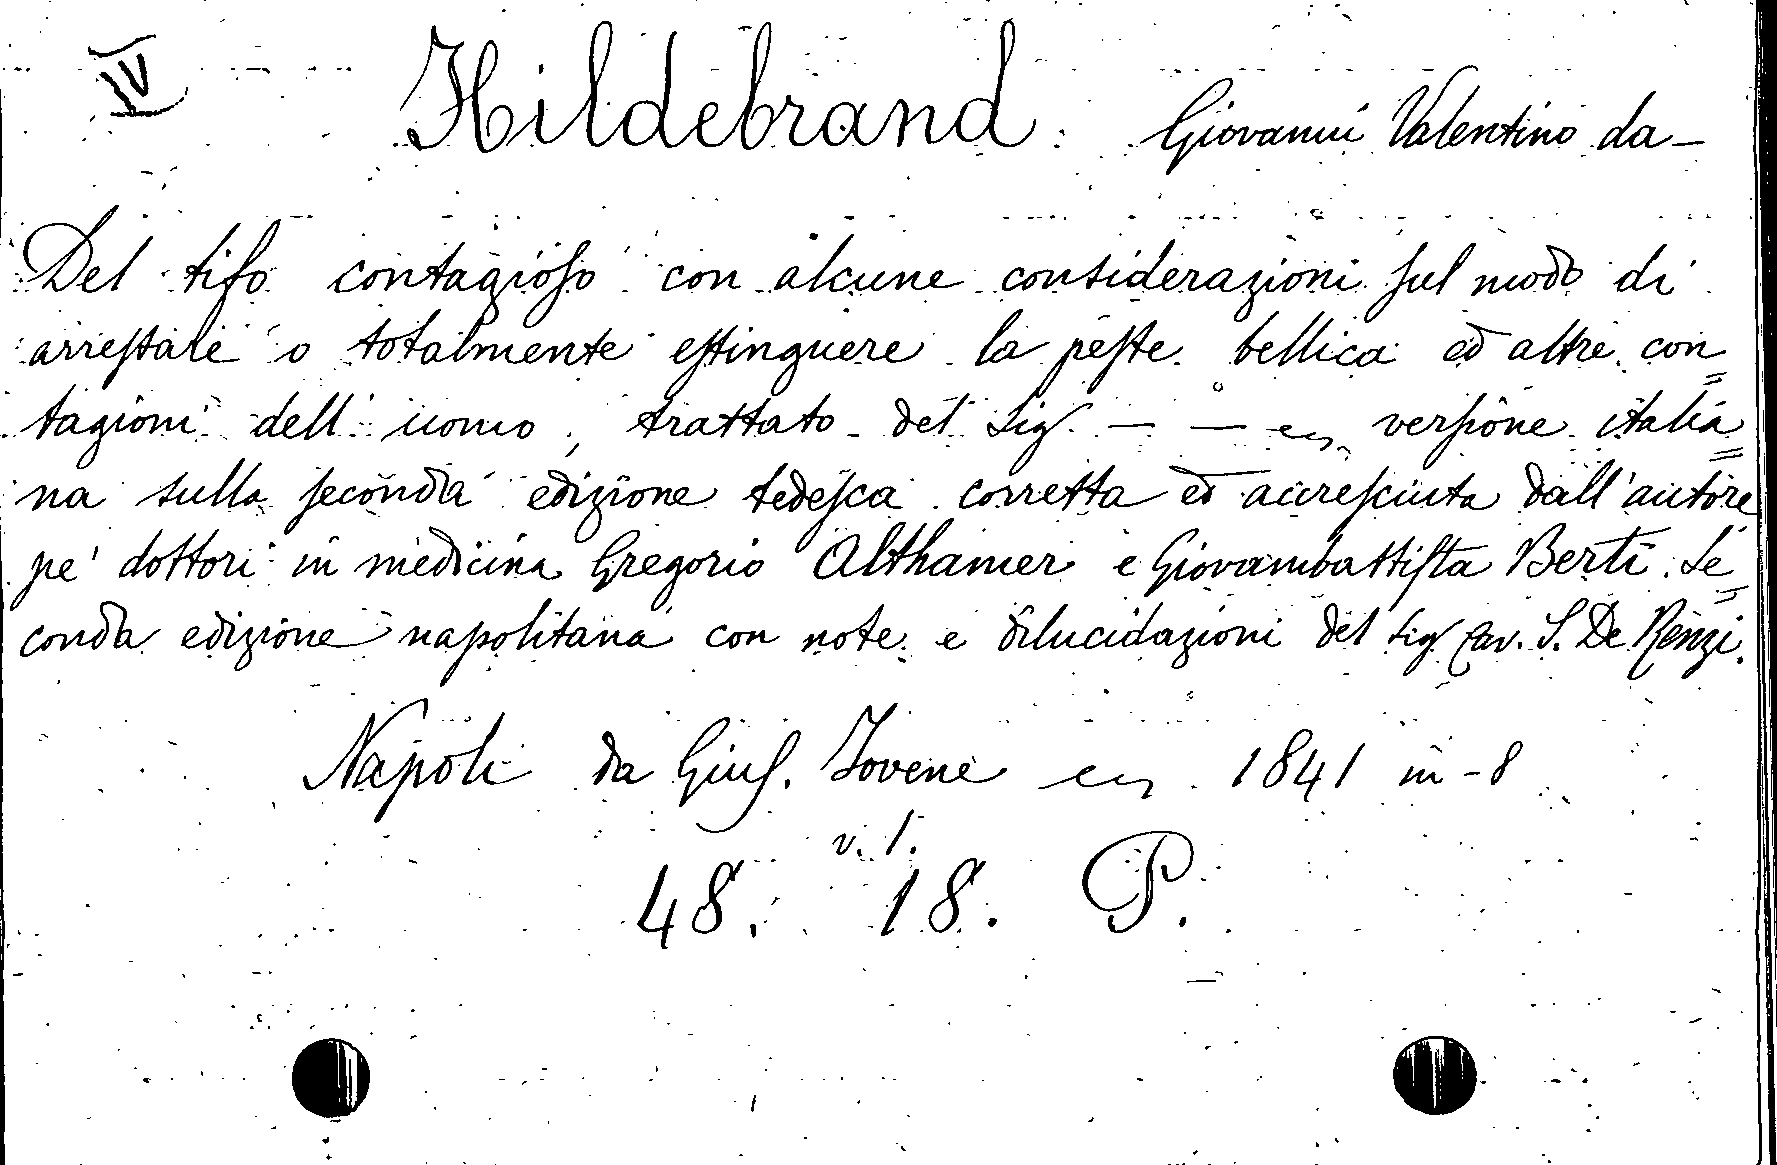 IV Hildebrand Giovanni Valentino da -
Del tifo contagioso con alcune considerazioni sul modo di
arrestare o totalmente estinguere la peste bellica ed altre con=
tagioni dell' uomo, trattato del sig. — — versione italia=
na sulla seconda edizione tedesca corretta ed accresciuta dall'autore
pe' dottori in medicina Gregorio Althamer e Giovambattista Berti. Se=
conda edizione napolitana con note e dilucidazioni del sig. Cav. S. De Renzi.
Napoli da Gius. Jovene 1841 in-8
v. 1.
48. 18. P.